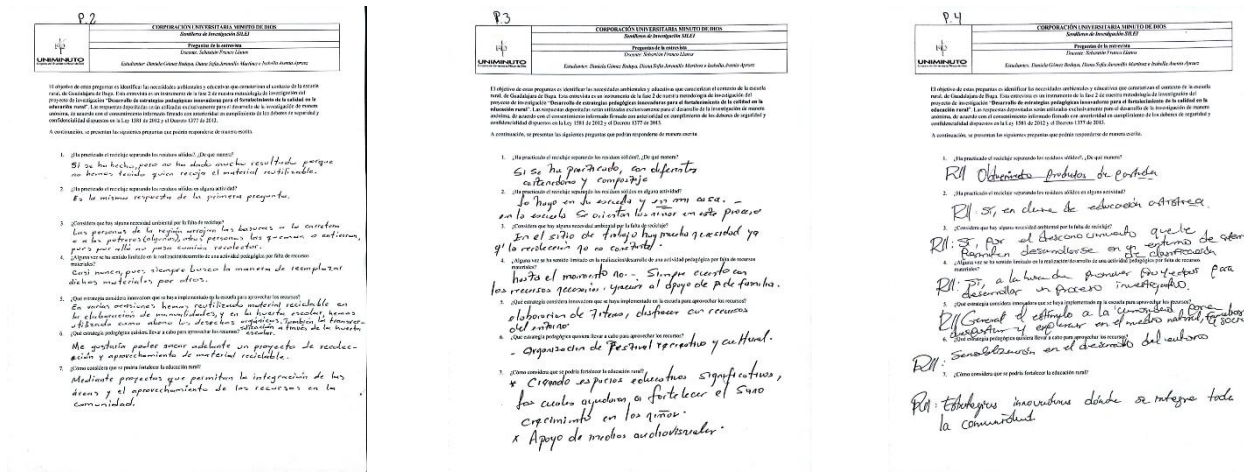 P.2
UNIMINUTO
CORPORACIÓN UNIVERSITARIA MINUTO DE DIOS
Semilleros de Investigación SILEI
Preguntas de la entrevista
Docente: Sebastián Franco Llanos
Estudiantes: Daniela Gómez Bedoya, Diana Sofía Jaramillo Martínez e Isabella Asenia Apraez
El objetivo de estas preguntas es identificar las necesidades ambientales y educativas que caracterizan el contexto de la escuela
rural, de Guadalajara de Buga. Esta entrevista es un instrumento de la fase 2 de nuestra metodología de investigación del
proyecto de investigación "Desarrollo de estrategias pedagógicas innovadoras para el fortalecimiento de la calidad en la
educación rural". Las respuestas depositadas serán utilizadas exclusivamente para el desarrollo de la investigación de manera
anónima, de acuerdo con el consentimiento informado firmado con anterioridad en cumplimiento de los deberes de seguridad y
confidencialidad dispuestos en la Ley 1581 de 2012 y el Decreto 1377 de 2013.
A continuación, se presentan las siguientes preguntas que podrán responderse de manera escrita.
1. ¿Ha practicado el reciclaje separando los residuos sólidos?, ¿De qué manera?
Si se ha hecho, pero no ha dado mucho resultado porque
no hemos tenido quien recoja el material reutilizable.
2. ¿Ha practicado el reciclaje separando los residuos sólidos en alguna actividad?
Es la misma respuesta de la primera pregunta.
3. ¿Considera que hay alguna necesidad ambiental por la falta de reciclaje?
Las personas de la región arrojan las basuras a la carretera
o a los potreros (algunos), otras personas las queman o entierran,
pues por allá no pasa camión recolector.
4. ¿Alguna vez se ha sentido limitado en la realización/desarrollo de una actividad pedagógica por falta de recursos
materiales?
Casi nunca, pues siempre busco la manera de reemplazar
dichos materiales por otros.
5. ¿Qué estrategia considera innovadora que se haya implementado en la escuela para aprovechar los recursos?
En varias ocasiones hemos reutilizado material reciclable en
la elaboración de manualidades, y en la huerta escolar, hemos
utilizando como abono los desechos orgánicos. También la
a través de la huerta
escolar.
6. ¿Qué estrategia pedagógica quisiera llevar a cabo para aprovechar los recursos?
Me gustaría poder sacar adelante un proyecto de recolec-
ción y aprovechamiento de material reciclable.
7. ¿Cómo considera que se podría fortalecer la educación rural?
Mediante proyectos que permitan la integración de las
áreas y el aprovechamiento de los recursos en la
comunidad.
P.3
UNIMINUTO
CORPORACIÓN UNIVERSITARIA MINUTO DE DIOS
Semilleros de Investigación SILEI
Preguntas de la entrevista
Docente: Sebastián Franco Llanos
Estudiantes: Daniela Gómez Bedoya, Diana Sofía Jaramillo Martínez e Isabella Asenia Apraez
El objetivo de estas preguntas es identificar las necesidades ambientales y educativas que caracterizan el contexto de la escuela
rural, de Guadalajara de Buga. Esta entrevista es un instrumento de la fase 2 de nuestra metodología de investigación del
proyecto de investigación "Desarrollo de estrategias pedagógicas innovadoras para el fortalecimiento de la calidad en la
educación rural". Las respuestas depositadas serán utilizadas exclusivamente para el desarrollo de la investigación de manera
anónima, de acuerdo con el consentimiento informado firmado con anterioridad en cumplimiento de los deberes de seguridad y
confidencialidad dispuestos en la Ley 1581 de 2012 y el Decreto 1377 de 2013.
A continuación, se presentan las siguientes preguntas que podrán responderse de manera escrita.
1. ¿Ha practicado el reciclaje separando los residuos sólidos?, ¿De qué manera?
Si se ha practicado, con diferentes
contenedores y compostaje
2. ¿Ha practicado el reciclaje separando los residuos sólidos en alguna actividad?
lo hago en la escuela y en mi casa. -
en la escuela se orientan los niños en este proceso
3. ¿Considera que hay alguna necesidad ambiental por la falta de reciclaje?
En el sitio de trabajo hay mucha necesidad ya
q' la recolección no es constante.
4. ¿Alguna vez se ha sentido limitado en la realización/desarrollo de una actividad pedagógica por falta de recursos
materiales?
hasta el momento no -. Siempre cuento con
los recursos necesarios. gracias al apoyo de p de familia.
5. ¿Qué estrategia considera innovadora que se haya implementado en la escuela para aprovechar los recursos?
elaboración de Títeres, disfraces con recursos
del entorno
6. ¿Qué estrategia pedagógica quisiera llevar a cabo para aprovechar los recursos?
- Organización de Festival recreativo y cultural.
7. ¿Cómo considera que se podría fortalecer la educación rural?
* Creando espacios educativos significativos,
los cuales ayudaran a fortalecer el sano
crecimiento en los niños.
* Apoyo de medios audiovisuales.
P.4
UNIMINUTO
CORPORACIÓN UNIVERSITARIA MINUTO DE DIOS
Semilleros de Investigación SILEI
Preguntas de la entrevista
Docente: Sebastián Franco Llanos
Estudiantes: Daniela Gómez Bedoya, Diana Sofía Jaramillo Martínez e Isabella Asenia Apraez
El objetivo de estas preguntas es identificar las necesidades ambientales y educativas que caracterizan el contexto de la escuela
rural, de Guadalajara de Buga. Esta entrevista es un instrumento de la fase 2 de nuestra metodología de investigación del
proyecto de investigación "Desarrollo de estrategias pedagógicas innovadoras para el fortalecimiento de la calidad en la
educación rural". Las respuestas depositadas serán utilizadas exclusivamente para el desarrollo de la investigación de manera
anónima, de acuerdo con el consentimiento informado firmado con anterioridad en cumplimiento de los deberes de seguridad y
confidencialidad dispuestos en la Ley 1581 de 2012 y el Decreto 1377 de 2013.
A continuación, se presentan las siguientes preguntas que podrán responderse de manera escrita.
1. ¿Ha practicado el reciclaje separando los residuos sólidos?, ¿De qué manera?
R// productos de
2. ¿Ha practicado el reciclaje separando los residuos sólidos en alguna actividad?
R//: Si, en clase de educación artística.
3. ¿Considera que hay alguna necesidad ambiental por la falta de reciclaje?
R//: Si, Por el desconocimiento que le
Permiten desenvolverse en un entorno de
de clasificación
4. ¿Alguna vez se ha sentido limitado en la realización/desarrollo de una actividad pedagógica por falta de recursos
materiales?
R//: Si, a la hora de promover Proyectos para
desarrollar un proceso investigativo.
5. ¿Qué estrategia considera innovadora que se haya implementado en la escuela para aprovechar los recursos?
R// General el estímulo a la comunidad para
despertar y explorar en el medio natural, y social
6. ¿Qué estrategia pedagógica quisiera llevar a cabo para aprovechar los recursos?
R//: Sensibilización en el desarrollo del entorno
7. ¿Cómo considera que se podría fortalecer la educación rural?
R//: Estrategias innovadoras dónde se integre toda
la comunidad